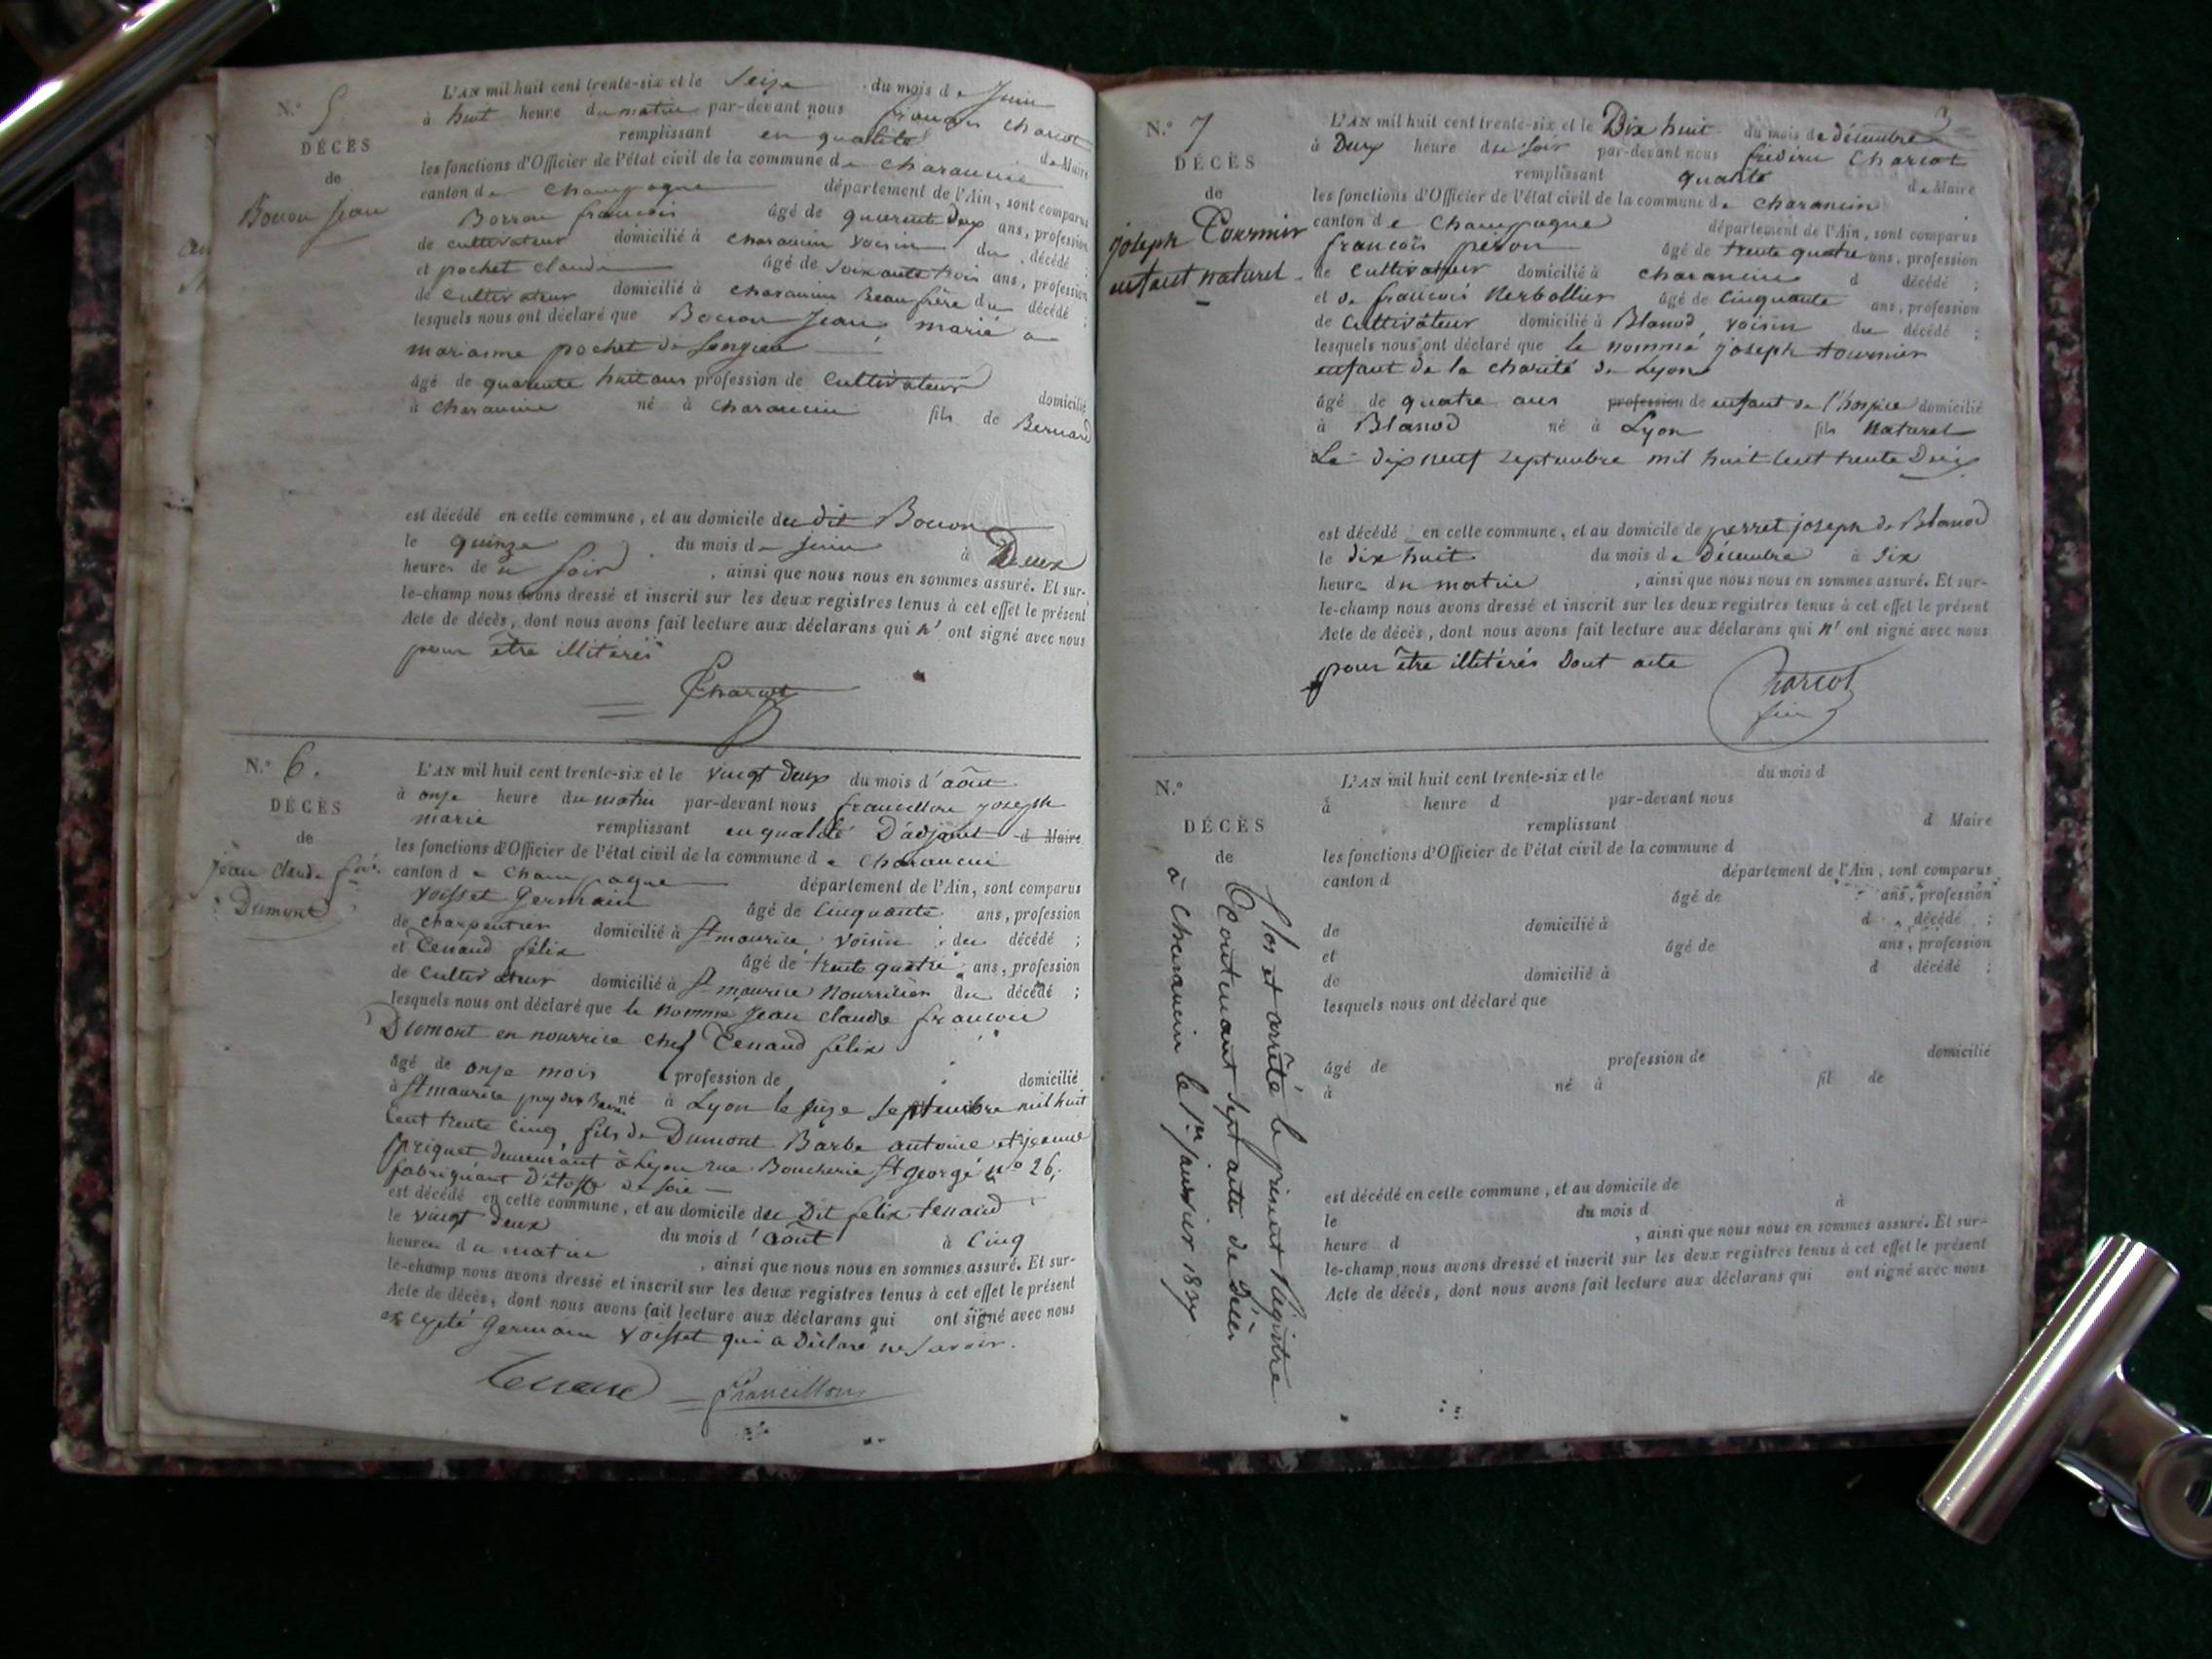 N.° 5.
DÉCÈS
de
Bocon Jean
L'AN mil huit cent trente-six et le Seize du mois de Juin
à huit heure du matin par-devant nous françois Charcot
remplissant en qualité de Maire
les fonctions d'Officier de l'état civil de la commune de Charancin
canton de Champagne département de l'Ain, sont comparus
Borron francois âgé de quarente deux ans, profession
de cultivateur domicilié à charancin voisin du décédé ;
et pochet Claude âgé de soixante trois ans, profession
de Cultivateur domicilié à charancin Beau frère du décédé ;
lesquels nous ont déclaré que Bocon Jean, marié a
marianne pochet de Songieu
âgé de quarante huit ans profession de Cultivateur domicilié
à Charancin né à Charancin fils de Bernard
est décédé en cette commune, et au domicile du dit Bocon
le quinze du mois de Juin à Deux
heures de u Soir , ainsi que nous nous en sommes assuré. Et sur-
le-champ nous avons dressé et inscrit sur les deux registres tenus à cet effet le présent
Acte de décès, dont nous avons fait lecture aux déclarans qui n' ont signé avec nous
pour être illitérés
Charcot
N.° 6.
DÉCÈS
de
Jean Claude fois
Dumont
L'AN mil huit cent trente-six et le vingt deux du mois d'août
à onze heure du matin par-devant nous francillon joseph
marie remplissant en qualité D'adjoint d Maire
les fonctions d'Officier de l'état civil de la commune de Charancin
canton de Champagne département de l'Ain, sont comparus
Voisset Germain âgé de Cinquante ans, profession
de charpentier domicilié à St maurice voisin du décédé ;
et Tenaud félix âgé de trente quatre ans, profession
de Cultivateur domicilié à St maurice Nourricier du décédé ;
lesquels nous ont déclaré que le nommé Jean Claude francois
Dumont en nourrice chez Tenaud félix
âgé de onze mois profession de domicilié
à St maurice né à Lyon le seize Septembre mil huit
Cent trente Cinq, fils de Dumont Barbe antoine et jeanne
demeurant à Lyon rue Boucherie St George n° 26,
fabriquant D'étoffe de soie
est décédé en cette commune, et au domicile du Dit felix tenaud
le vingt deux du mois d'août à Cinq
heures du matin , ainsi que nous nous en sommes assuré. Et sur-
le-champ nous avons dressé et inscrit sur les deux registres tenus à cet effet le présent
Acte de décès, dont nous avons fait lecture aux déclarans qui ont signé avec nous
excepté Germain Voisset qui a Déclaré ne Savoir.
Tenaud francillon
3
N.° 7
DÉCÈS
de
joseph Tournier
enfant naturel
L'AN mil huit cent trente-six et le Dix huit du mois de décembre
à Deux heure du Soir par-devant nous fréderic Charcot
remplissant qualité de Maire
les fonctions d'Officier de l'état civil de la commune de charancin
canton de Champagne département de l'Ain, sont comparus
francois peron âgé de trente quatre ans, profession
de Cultivateur domicilié à charancin d décédé ;
et de francois Nerbollier âgé de Cinquante ans, profession
de Cultivateur domicilié à Blanod, voisin du décédé ;
lesquels nous ont déclaré que le nommé joseph tournier
enfant de la charité de Lyon
âgé de quatre ans profession de enfant de l'hospice domicilié
à Blanod né à Lyon fils Naturel
Le dix neuf septembre mil huit Cent trente Deux
est décédé en cette commune, et au domicile de perret joseph de Blanod
le dix huit du mois de Décembre à Six
heures du matin , ainsi que nous nous en sommes assuré. Et sur-
le-champ nous avons dressé et inscrit sur les deux registres tenus à cet effet le présent
Acte de décès, dont nous avons fait lecture aux déclarans qui n' ont signé avec nous
pour être illitérés Dont acte
Charcot
N.°
DÉCÈS
de
L'AN mil huit cent trente-six et le du mois d
à heure d par-devant nous
remplissant d Maire
les fonctions d'Officier de l'état civil de la commune d
canton d département de l'Ain, sont comparus
âgé de ans, profession
de domicilié à d décédé ;
et âgé de ans, profession
de domicilié à d décédé ;
lesquels nous ont déclaré que
âgé de profession de domicilié
à né à fil de
est décédé en cette commune, et au domicile de
le du mois d à
heure d , ainsi que nous nous en sommes assuré. Et sur-
le-champ nous avons dressé et inscrit sur les deux registres tenus à cet effet le présent
Acte de décès, dont nous avons fait lecture aux déclarans qui ont signé avec nous
Clos et arrêté le présent Régistre
Contenant sept acte de Décès
à Charancin le 1er janvier 1837